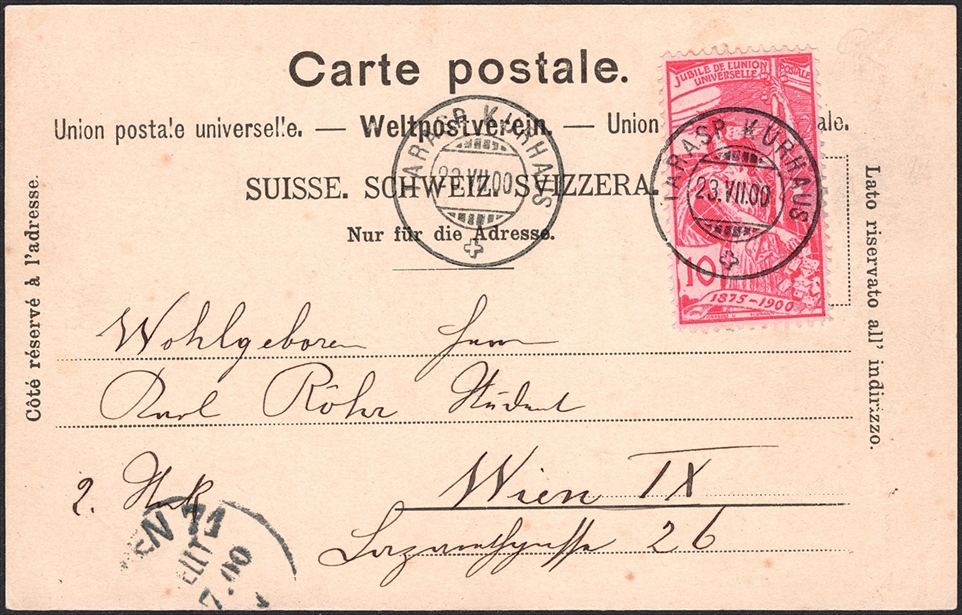 Carte postale.
Union postale universelle. — Weltpostverein. — Union ale.
SUISSE. SCHWEIZ. SVIZZERA.
Nur für die Adresse.
JUBILÉ DE L'UNION POSTALE
UNIVERSELLE
10
1875-1900
TARASP KURHAUS
23.VII.00
TARASP KURHAUS
23.VII.00
Côté réservé à l'adresse.
Lato riservato all' indirizzo.
Wohlgeboren Herrn
Karl Röhr Student
2. Stk
Wien IX
Lazarethgasse 26
IEN 71
7.00